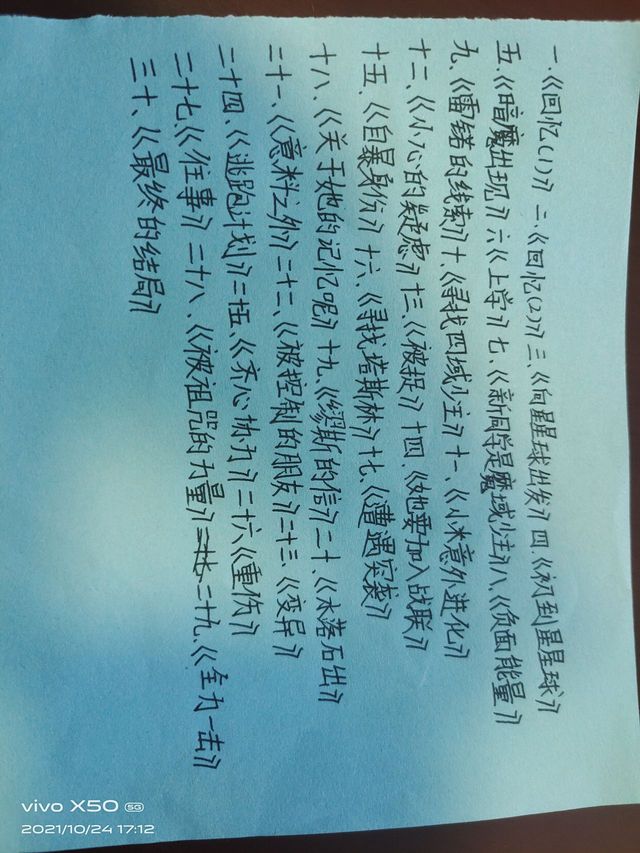 一、《回忆(1)》 二、《回忆(2)》 三、《向星星球出发》 四、《初到星星球》
五、《暗魔出现》 六、《上学》 七、《新同学是魔域少主》 八、《负面能量》
九、《雷锘的线索》 十、《寻找四域少主》 十一、《小米意外进化》
十二、《小心的疑虑》 十三、《被捉》 十四、《她要加入战联》
十五、《自暴身份》 十六、《寻找塔斯林》 十七、《遭遇突袭》
十八、《关于她的记忆呢》 十九、《缪斯的信》 二十、《水落石出》
二十一、《意料之外》 二十二、《被控制的朋友》 二十三、《变异》
二十四、《逃跑计划》 二十五、《齐心协力》 二十六《重伤》
二十七、《往事》 二十八、《被祖咒的力量》 二十九、《全力一击》
三十、《最终的结局》
vivo X50 5G
2021/10/24 17:12